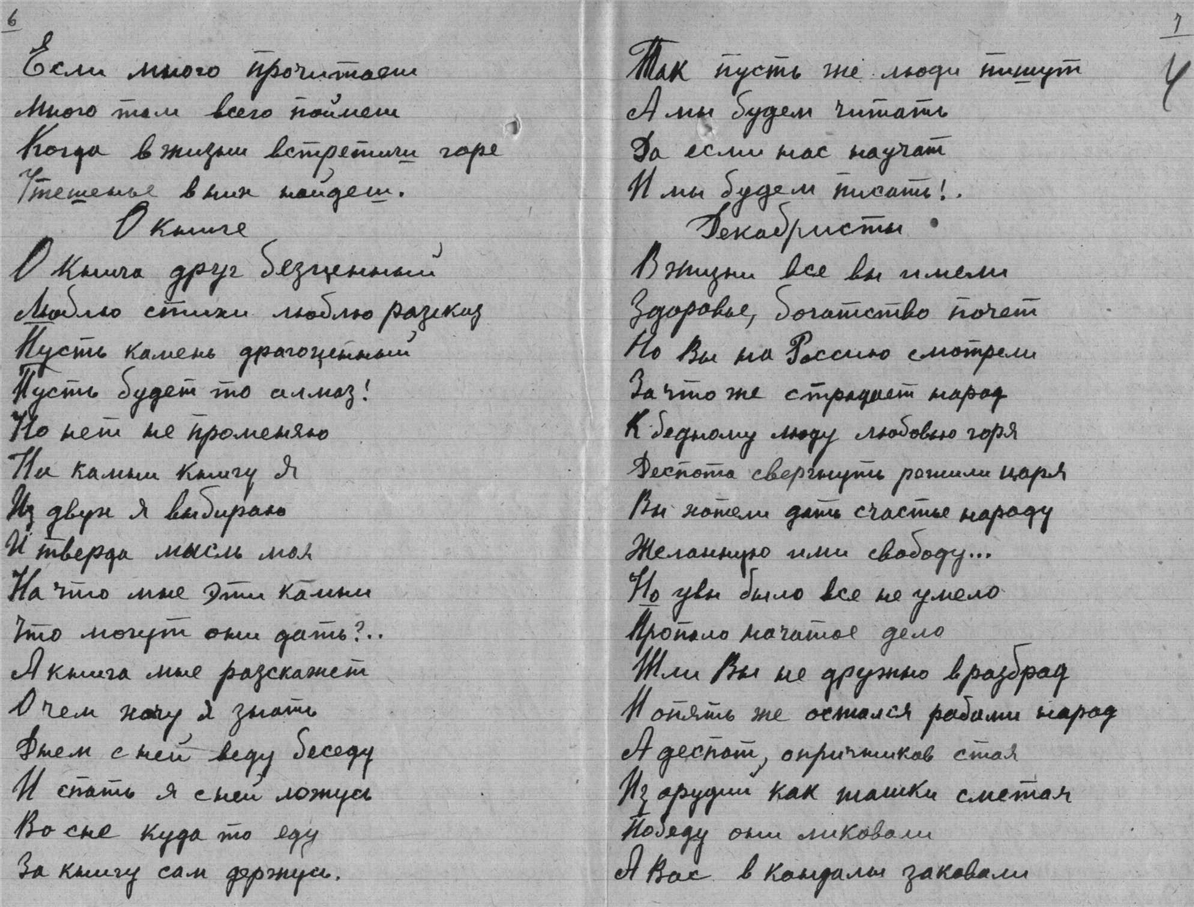 6
Если много прочитаеш
Много там всего поймеш
Когда в жизни встретичи горе
Утешенье в них найдеш.
О книге
О Книга друг безценный
Люблю стихи люблю разсказ
Пусть камень драгоценный
Пусть будет то алмаз!
Но нет не променяю
На камни книгу я
Из двух я выбираю
И тверда мысль моя
На что мне эти камни
Что могут они дать?..
А книга мне разскажет
О чем хочу я знать
Днем с ней веду беседу
И спать я с ней ложусь
Во сне куда то еду
За книгу сам держусь.
7
4
Так пусть же люди пишут
А мы будем читать
Да если нас научат
И мы будем писать!.
Декабристы
В жизни все вы имели
Здоровье, богатство почет
Но Вы на Россию смотрели
За что же страдает народ
К бедному люду любовью горя
Деспота свергнуть решили царя
Вы хотели дать счастье народу
Желанную ими свободу...
Но увы было все не умело
Пропало начатое дело
Шли Вы не дружно в разброд
И опять же остался рабами народ
А деспот, опричников стая
Из орудий как пташки сметая
Победу они ликовали
А Вас в кандалы заковали